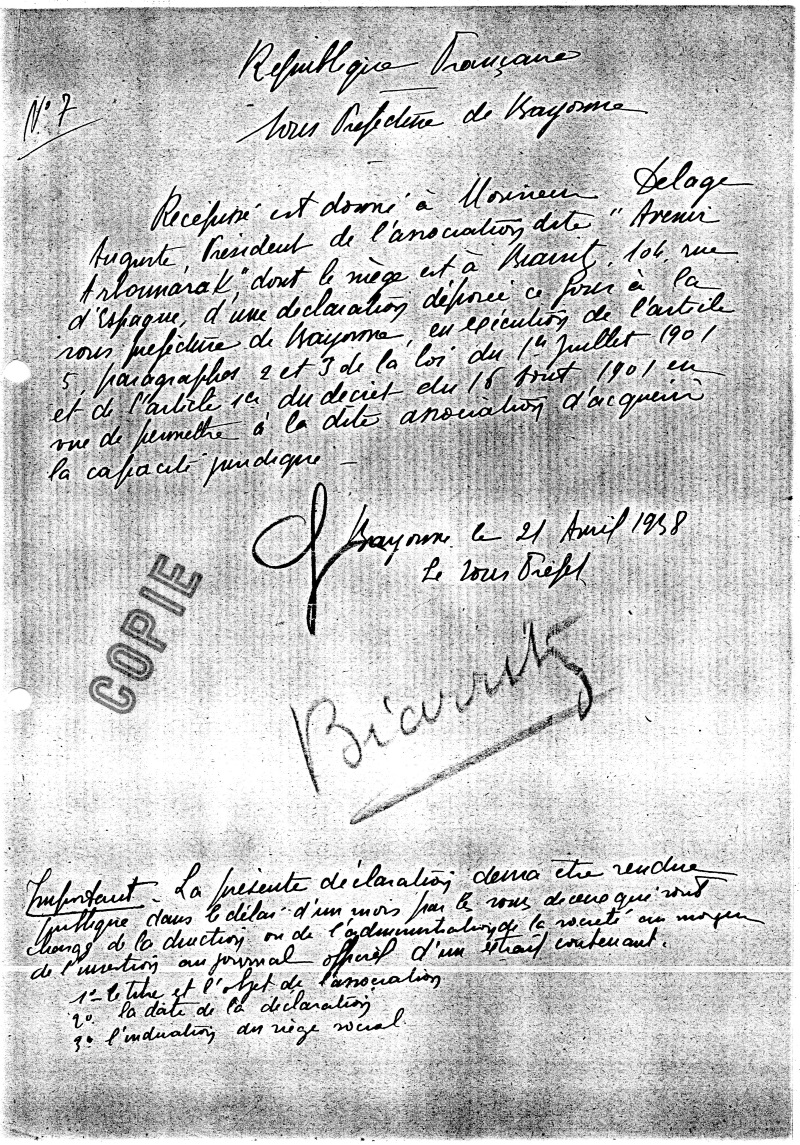 République Française
N° 7
Sous Préfecture de Bayonne
Récépissé est donné à Monsieur Delage
Auguste, Président de l'association dite "Avenir
dont le siège est à Biarritz, 104, rue
d'Espagne, d'une déclaration déposée ce jour à la
sous préfecture de Bayonne, en exécution de l'article
5, paragraphes 2 et 3 de la loi du 1er Juillet 1901
et de l'article 1er du décret du 16 Août 1901 en
vue de permettre à la dite association d'acquérir
la capacité juridique —
Bayonne le 21 Avril 1938
Le Sous Préfet
COPIE
Biarritz
Important - La présente déclaration devra être rendue
publique dans le délai d'un mois par le
chargé de la direction ou de l'administration de la société au moyen
de l'insertion au journal officiel d'un extrait contenant.
1° - le titre et l'objet de l'association
2° la date de la déclaration
3° l'indication du siège social